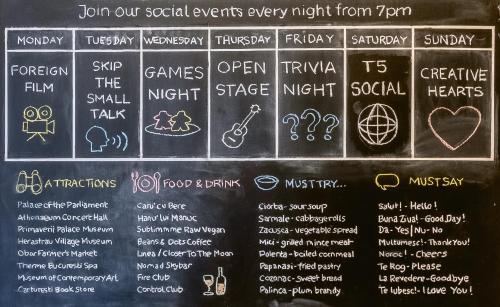 Join our social events every night from 7pm
MONDAY TUESDAY WEDNESDAY THURSDAY FRIDAY SATURDAY SUNDAY
FOREIGN FILM
SKIP THE SMALL TALK
GAMES NIGHT
OPEN STAGE
TRIVIA NIGHT
???
T5 SOCIAL
CREATIVE HEARTS
ATTRACTIONS
Palace of the Parliament
Athenaeum Concert Hall
Primaverii Palace Museum
Herastrau Village Museum
Obor Farmer's Market
Therme Bucuresti Spa
Museum of Contemporary Art
Carturesti Book Store
FOOD & DRINK
Caru'cu Bere
Hanu'lui Manuc
Sublimme Raw Vegan
Beans & Dots Coffee
Linea / Closer To The Moon
Nomad Skybar
Fire Club
Control Club
MUST TRY...
Ciorba - sour soup
Sarmale - cabbage rolls
Zacusca - vegetable spread
Mici - grilled mince meat
Polenta - boiled cornmeal
Papanasi - fried pastry
Cozonac - sweet bread
Palinca - plum brandy
MUST SAY
Salut! - Hello!
Buna Ziua! - Good Day!
Da - Yes / Nu - No
Multumesc! - Thank You!
Noroc! - Cheers
Te Rog - Please
La Revedere - Goodbye
Te Iubesc! - I Love You!